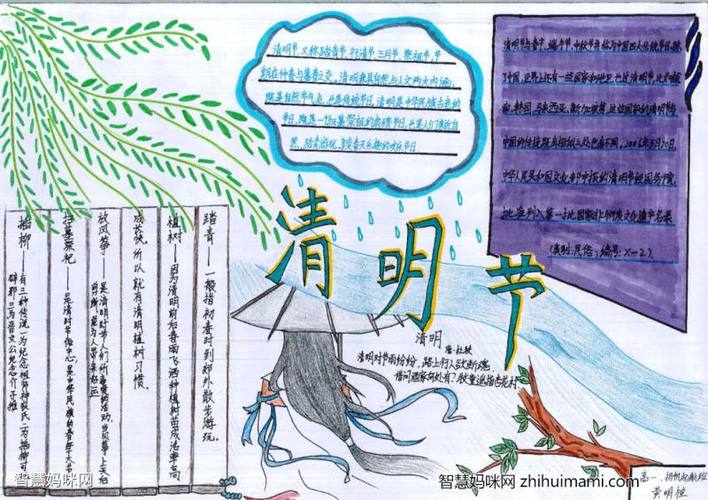 清明节,又称踏青节、行清节、三月节、祭祖节,节
期在仲春与暮春之交。清明兼具自然与人文两大内涵,
既是自然节气点,也是传统节日。清明是中华民族古老的
节日,既是一个扫墓祭祖的肃穆节日,也是人们亲近自
然、踏青游玩、享受春天乐趣的欢乐节日
清明节与春节、端午节、中秋节并称为中国四大传统节日。除
了中国,世界上还有一些国家和地区也过清明节,比如越
南、韩国、马来西亚、新加坡等
2006年5月20日,
中华人民共和国文化部申报的清明节经国务院
批准列入第一批国家级非物质文化遗产名录
(类别:民俗;编号:X-2)
清明节
清明
唐·杜牧
清明时节雨纷纷,路上行人欲断魂
借问酒家何处有?牧童遥指杏花村
踏青——一般指初春时到郊外散步游玩。
植树——因为清明前后春雨飞洒种植树苗成活率高
成长快,所以就有清明植树习惯
放风筝——是清明时节人们所喜爱的活动
扫墓祭祀——是清明节俗中心
插柳——有三种传说一为纪念祖师神农氏二为插柳可
辟邪三为晋文公纪念介子推
高一、扬帆起航组
黄明桂
智慧妈咪网
智慧妈咪网 zhihuimami.com